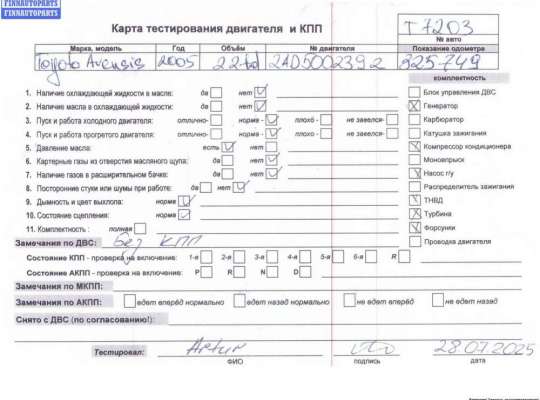 FINNAUTOPARTS
FINNAUTOPARTS
Карта тестирования двигателя и КПП
T 7203
№ авто
Марка, модель Год Объём № двигателя Показание одометра
Toyota Avensis 2005 2.2td 2AD5002392 325749
комплектность
1. Наличие охлаждающей жидкости в масле: да нет
Блок управления ДВС
2. Наличие масла в охлаждающей жидкости: да нет
Генератор
3. Пуск и работа холодного двигателя: отлично- норма - плохо - не завелся-
Карбюратор
4. Пуск и работа прогретого двигателя: отлично- норма - плохо - не завелся-
Катушка зажигания
5. Давление масла: есть нет
Компрессор кондиционера
6. Картерные газы из отверстия масляного щупа: да нет
Моновпрыск
7. Наличие газов в расширительном бачке: да нет
Насос г/у
8. Посторонние стуки или шумы при работе: да нет
Распределитель зажигания
9. Дымность и цвет выхлопа: норма
ТНВД
10. Состояние сцепления: норма
Турбина
11. Комплектность : полная
Форсунки
Замечания по ДВС: без КПП
Проводка двигателя
Состояние КПП - проверка на включение: 1-я 2-я 3-я 4-я 5-я 6-я R
Состояние АКПП - проверка на включение: P R N D
Замечания по МКПП:
Замечания по АКПП: едет вперёд нормально едет назад нормально не едет вперёд не едет назад
Снято с ДВС (по согласованию!):
Тестировал: Artur 28.07.2025
ФИО подпись дата